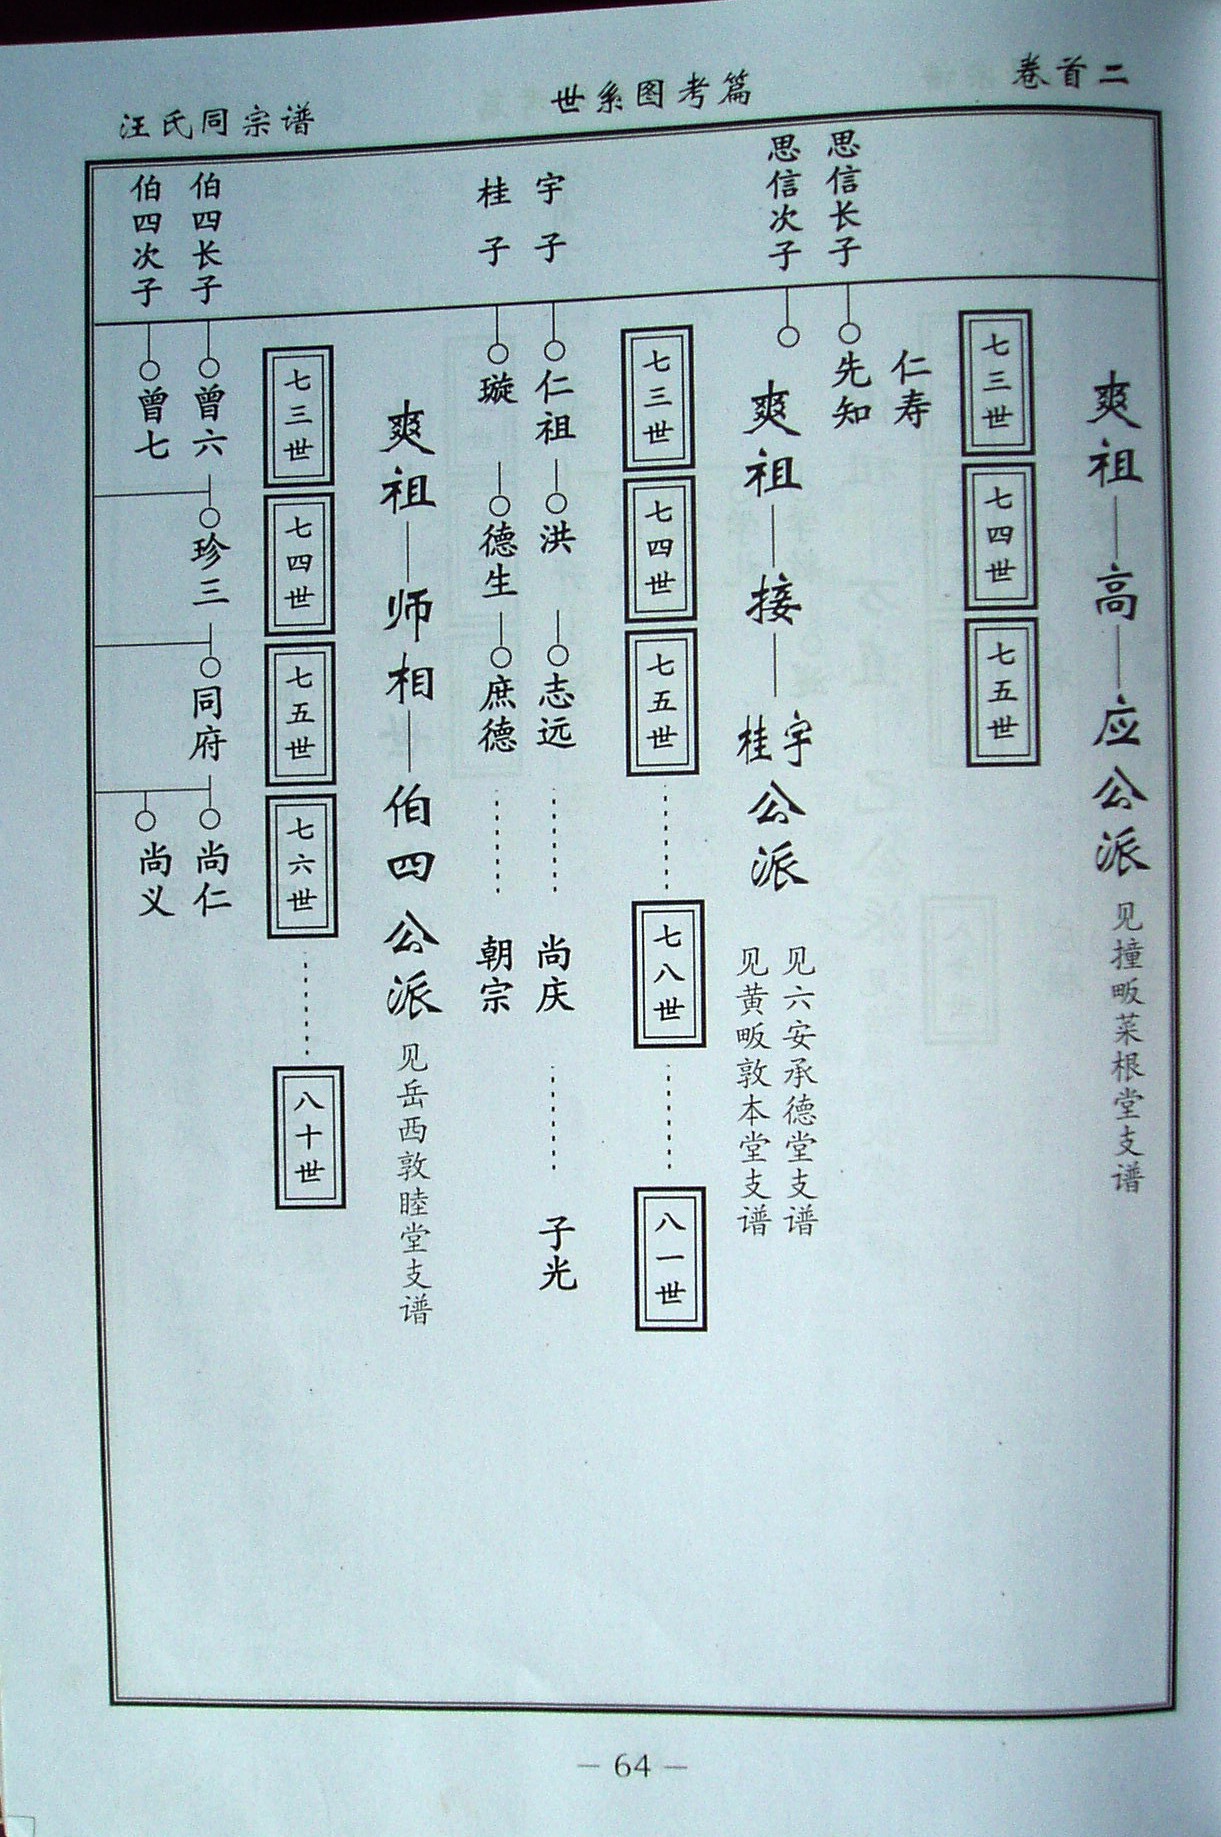 卷首二
世系图考篇
汪氏同宗谱
爽祖—高—应公派 见撞畈菜根堂支谱
七三世
七四世
七五世
仁寿
思信长子
先知
思信次子
爽祖—接—宇桂公派
见六安承德堂支谱
见黄畈敦本堂支谱
七三世
七四世
七五世
七八世
八一世
宇子
仁祖
洪
志远
尚庆
子光
桂子
璇
德生
庶德
朝宗
爽祖—师相—伯四公派 见岳西敦睦堂支谱
七三世
七四世
七五世
七六世
八十世
伯四长子
曾六
珍三
同府
尚仁
伯四次子
曾七
尚义
— 64 —